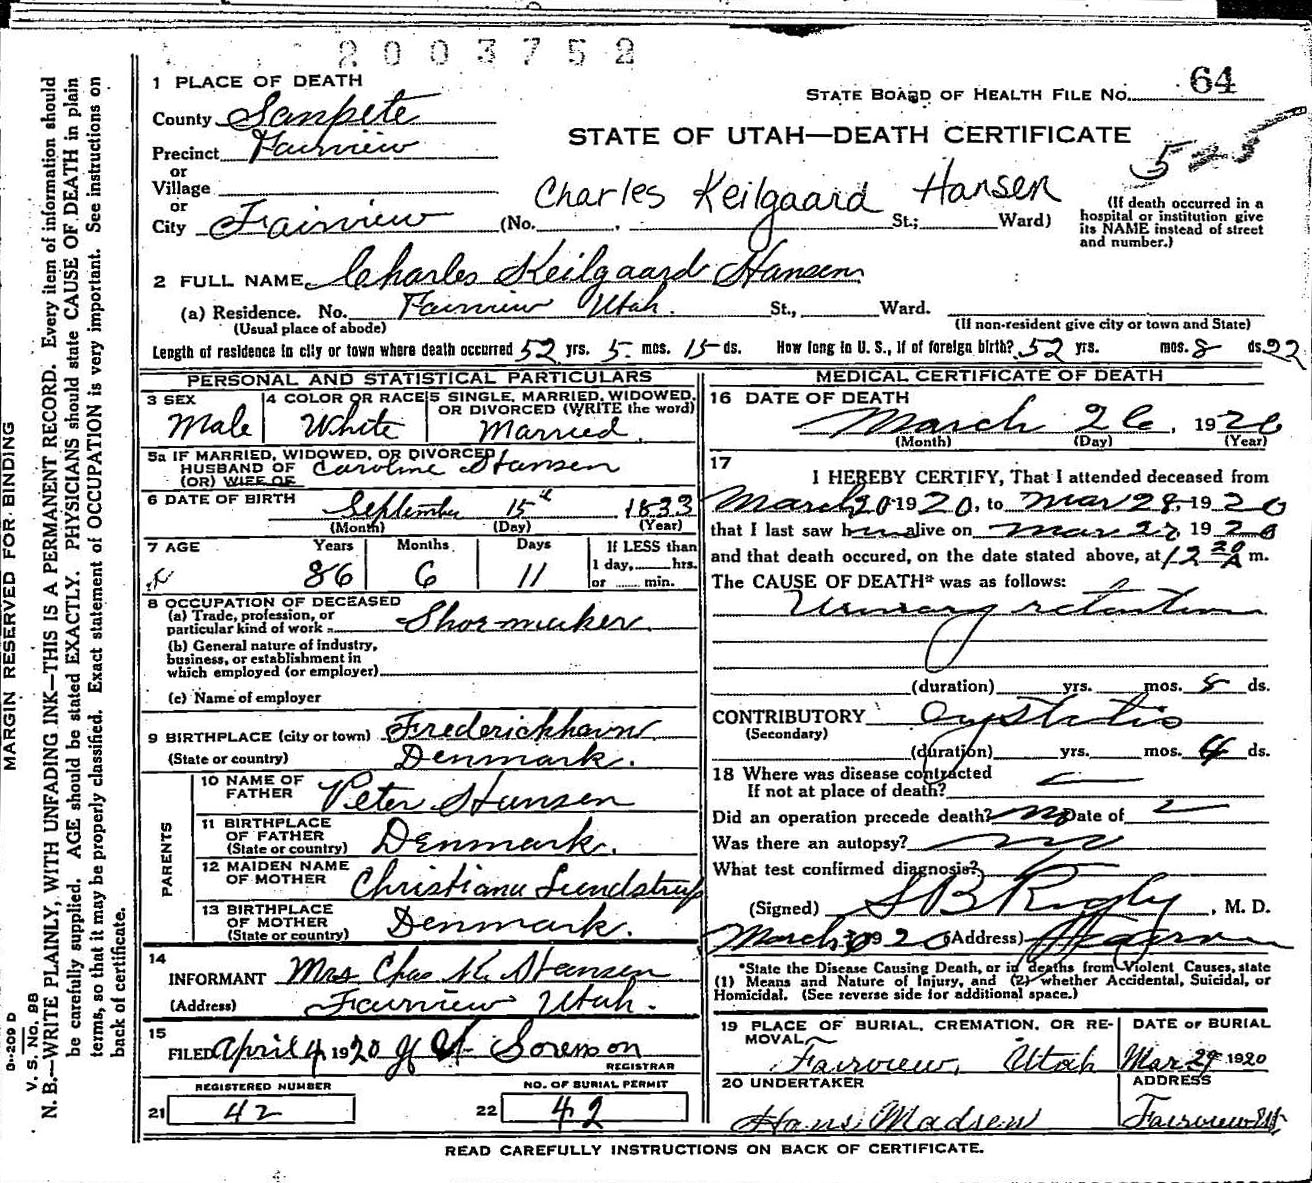 2003752
1 PLACE OF DEATH
STATE BOARD OF HEALTH FILE NO. 64
County Sanpete
STATE OF UTAH—DEATH CERTIFICATE
525
Precinct Fairview
or
Village
or
City Fairview (No. , St.; Ward)
Charles Keilgaard Hansen
(If death occurred in a
hospital or institution give
its NAME instead of street
and number.)
2 FULL NAME Charles Keilgaard Hansen
(a) Residence. No. Fairview Utah. St., Ward.
(Usual place of abode)
(If non-resident give city or town and State)
Length of residence in city or town where death occurred 52 yrs. 5 mos. 15 ds. How long in U. S., if of foreign birth? 52 yrs. mos. 8 ds. 22
PERSONAL AND STATISTICAL PARTICULARS
3 SEX
Male
4 COLOR OR RACE
White
5 SINGLE, MARRIED, WIDOWED,
OR DIVORCED (WRITE the word)
Married
5a IF MARRIED, WIDOWED, OR DIVORCED
HUSBAND OF Caroline Hansen
(OR) WIFE OF
6 DATE OF BIRTH September 15th 1833
(Month) (Day) (Year)
7 AGE Years Months Days
86 6 11
If LESS than
1 day, hrs.
or min.
8 OCCUPATION OF DECEASED
(a) Trade, profession, or
particular kind of work Shoe-maker
(b) General nature of industry,
business, or establishment in
which employed (or employer)
(c) Name of employer
9 BIRTHPLACE (city or town) Frederickhavn
(State or country) Denmark.
PARENTS
10 NAME OF
FATHER Peter Hansen
11 BIRTHPLACE
OF FATHER
(State or country) Denmark.
12 MAIDEN NAME
OF MOTHER Christiana Lundstrup
13 BIRTHPLACE
OF MOTHER
(State or country) Denmark.
14
INFORMANT Mrs Chas K. Hansen
(Address) Fairview Utah.
15
FILED April 4 1920 Sorenson
REGISTRAR
REGISTERED NUMBER
21 42
NO. OF BURIAL PERMIT
22 42
MEDICAL CERTIFICATE OF DEATH
16 DATE OF DEATH
March 26, 1920
(Month) (Day) (Year)
17
I HEREBY CERTIFY, That I attended deceased from
March 20 1920, to Mar 28, 1920
that I last saw him alive on Mar 27, 1920
and that death occured, on the date stated above, at 12 20 A m.
The CAUSE OF DEATH* was as follows:
Urinary retention
(duration) yrs. mos. 8 ds.
CONTRIBUTORY Cystitis
(Secondary)
(duration) yrs. mos. 4 ds.
18 Where was disease contracted
If not at place of death?
Did an operation precede death? no Date of
Was there an autopsy? no
What test confirmed diagnosis?
(Signed) S B Rigby, M. D.
March 30 1920 (Address) Fairview
*State the Disease Causing Death, or in deaths from Violent Causes, state
(1) Means and Nature of Injury, and (2) whether Accidental, Suicidal, or
Homicidal. (See reverse side for additional space.)
19 PLACE OF BURIAL, CREMATION, OR RE-
MOVAL
Fairview, Utah
DATE OF BURIAL
Mar 29 1920
20 UNDERTAKER
Hans Madsen
ADDRESS
Fairview Ut
READ CAREFULLY INSTRUCTIONS ON BACK OF CERTIFICATE.
MARGIN RESERVED FOR BINDING
B-209 D
V. S. No. BB
N. B.—WRITE PLAINLY, WITH UNFADING INK—THIS IS A PERMANENT RECORD. Every item of information should
be carefully supplied. AGE should be stated EXACTLY. PHYSICIANS should state CAUSE OF DEATH in plain
terms, so that it may be properly classified. Exact statement of OCCUPATION is very important. See instructions on
back of certificate.